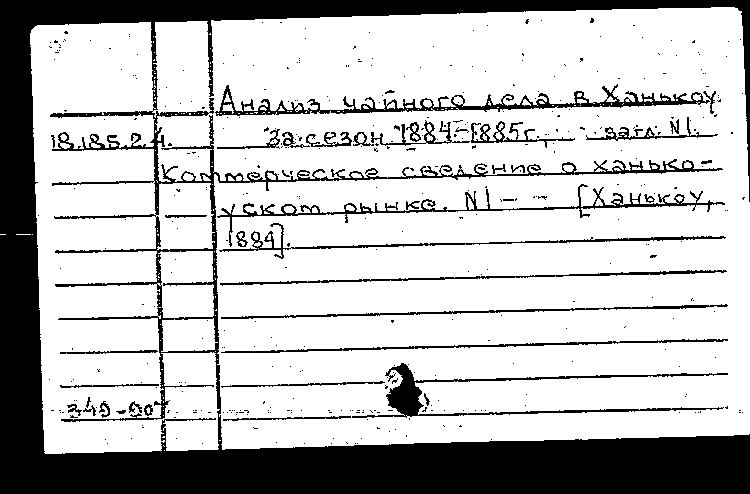 Анализ чайного дела в Ханькоу
18.185.2.4. за сезон 1884-1885г., загл. N1.
Коммерческое сведение о ханько-
уском рынке. N1 - - [Ханькоу,
1884].
349-007